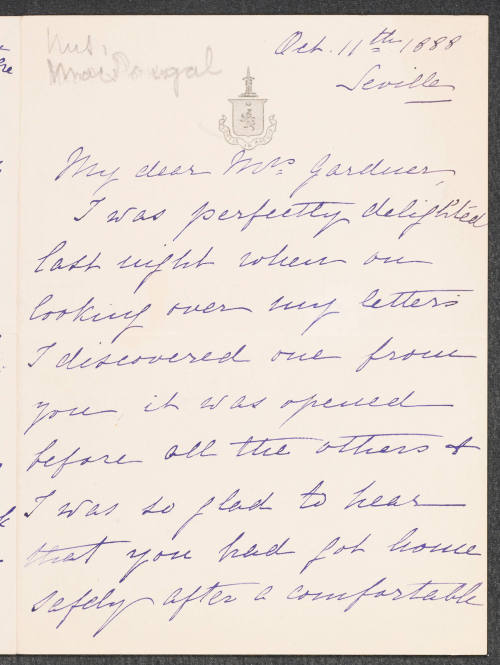 Mrs.
MacDougal
Oct. 11th 1888
Seville
My dear Mrs. Gardner,
I was perfectly delighted
last night when on
looking over my letters
I discovered one from
you, it was opened
before all the others &
I was so glad to hear
that you had got home
safely after a comfortable